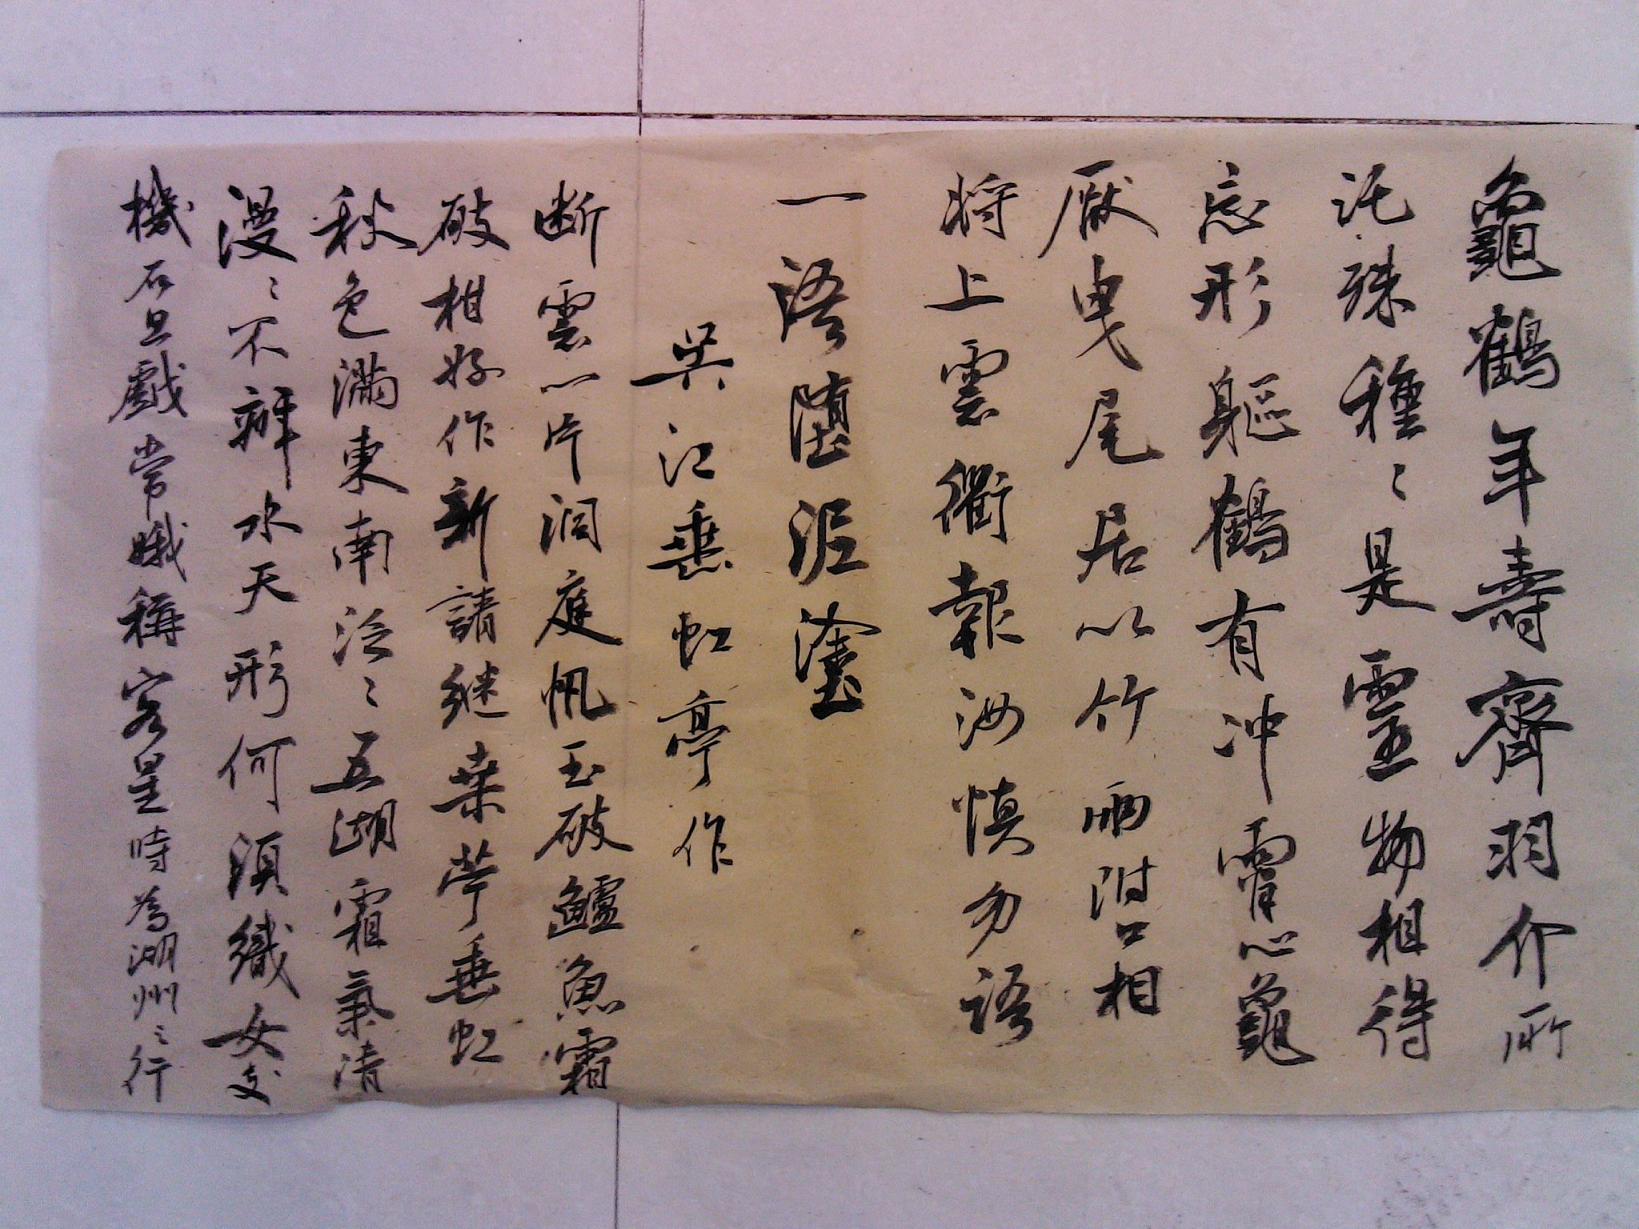 龜鶴年壽齊羽介所
託殊種〻是靈物相得
忘形軀鶴有沖霄心龜
厭曳尾居以竹兩附口相
將上雲衢報汝慎勿語
一語墮泥塗
吳江垂虹亭作
断雲一片洞庭帆玉破鱸魚霜
破柑好作新請継桒苧垂虹
秋色滿東南泛〻五湖霜氣清
漫〻不辨水天形何須織女支
機石且戲常娥稱客星時為湖州之行